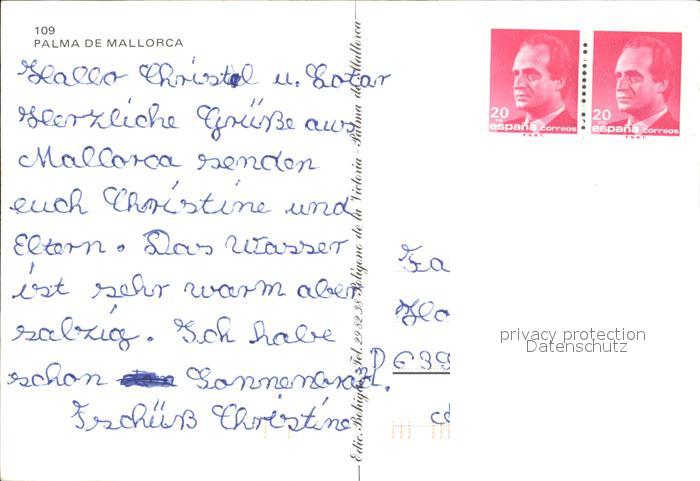 109
PALMA DE MALLORCA
Hallo Christel u. Lotar
Herzliche Grüße aus
Mallorca senden
euch Christine und
Eltern. Das Wasser
ist sehr warm aber
salzig. Ich habe
schon Sonnenbrad.
Tschüß Christine
Edic. Bohigas - Tel. 29 82 38 - Poligono de la Victoria - Palma de Mallorca
20 españa correos
F.N.M.T.
20 españa correos
F.N.M.T.
Fa
D 639
privacy protection
Datenschutz